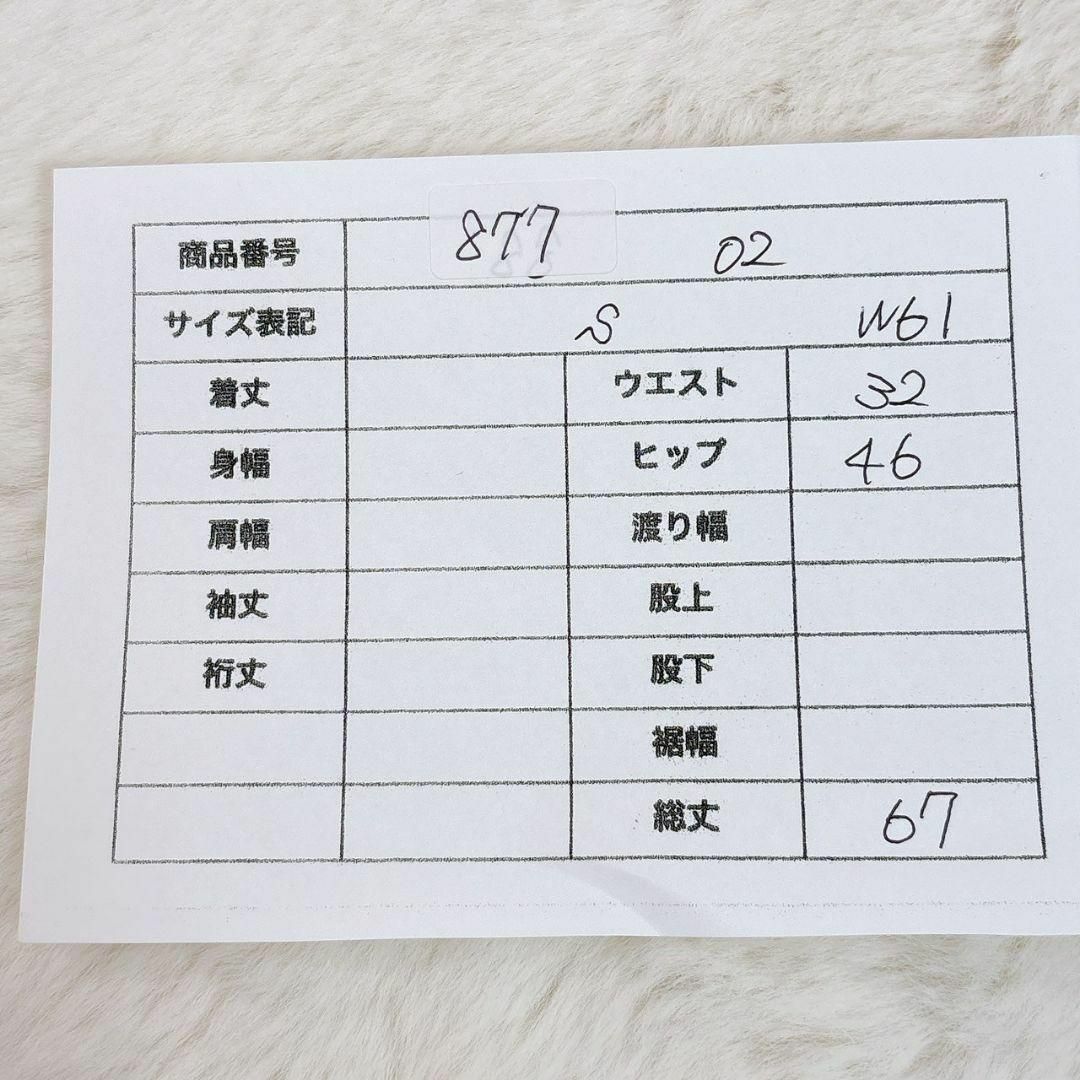 商品番号 877 02
サイズ表記 S W61
着丈 ウエスト 32
身幅 ヒップ 46
肩幅 渡り幅
袖丈 股上
裄丈 股下
裾幅
総丈 67